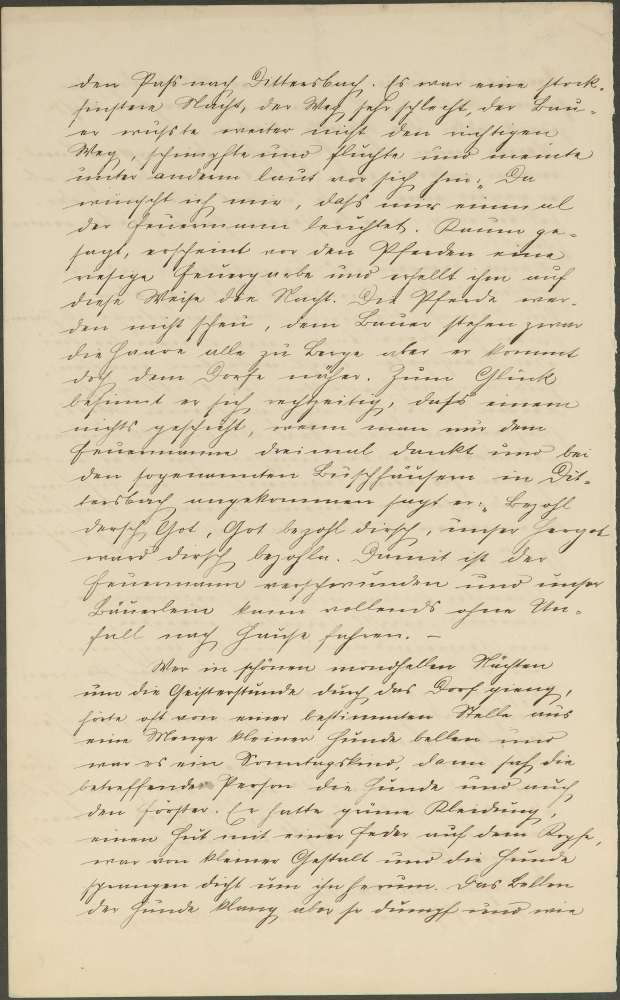 den Paß nach Dittersbach. Es war eine stock-
finstere Nacht, der Weg sehr schlecht, der Bau-
er wußte weiter nicht den richtigen
Weg, schimpfte und fluchte und meinte
unter anderm laut vor sich hin: „Da
wünscht ich mir, daß mir einmal
der Feuermann leuchtet. Kaum ge-
sagt, erscheint vor den Pferden eine
riesige Feuergarbe und erhellt ihm auf
diese Weise die Nacht. Die Pferde wer-
den nicht scheu, dem Bauer stehen zwar
die Haare alle zu Berge aber er kommt
doch dem Dorfe näher. Zum Glück
besinnt er sich rechtzeitig, daß einem
nichts geschieht, wenn man nur dem
Feuermanne dreimal dankt und bei
den sogenannten Buschhäusern in Dit-
tersbach angekommen sagt er: „Bezohl
dersch Got, Got bezohl dirsch, unser Hergot
ward dirsch bezohln. Damit ist der
Feuermann verschwunden und unser
Bäuerlein kann vollends ohne Un-
fall nach Hause fahren. –
Wer in schönen mondhellen Nächten
um die Geisterstunde durch das Dorf gieng,
hörte oft von einer bestimmten Stelle aus
eine Menge kleiner Hunde bellen und
war es ein Sonntagskind, dann sah die
betreffende Person die Hunde und auch
den Förster. Er hatte grüne Kleidung,
einen Hut mit einer Feder auf dem Kopfe,
war von kleiner Gestalt und die Hunde
sprangen dicht um ihn herum. Das Bellen
der Hunde klang aber so dumpf und wie